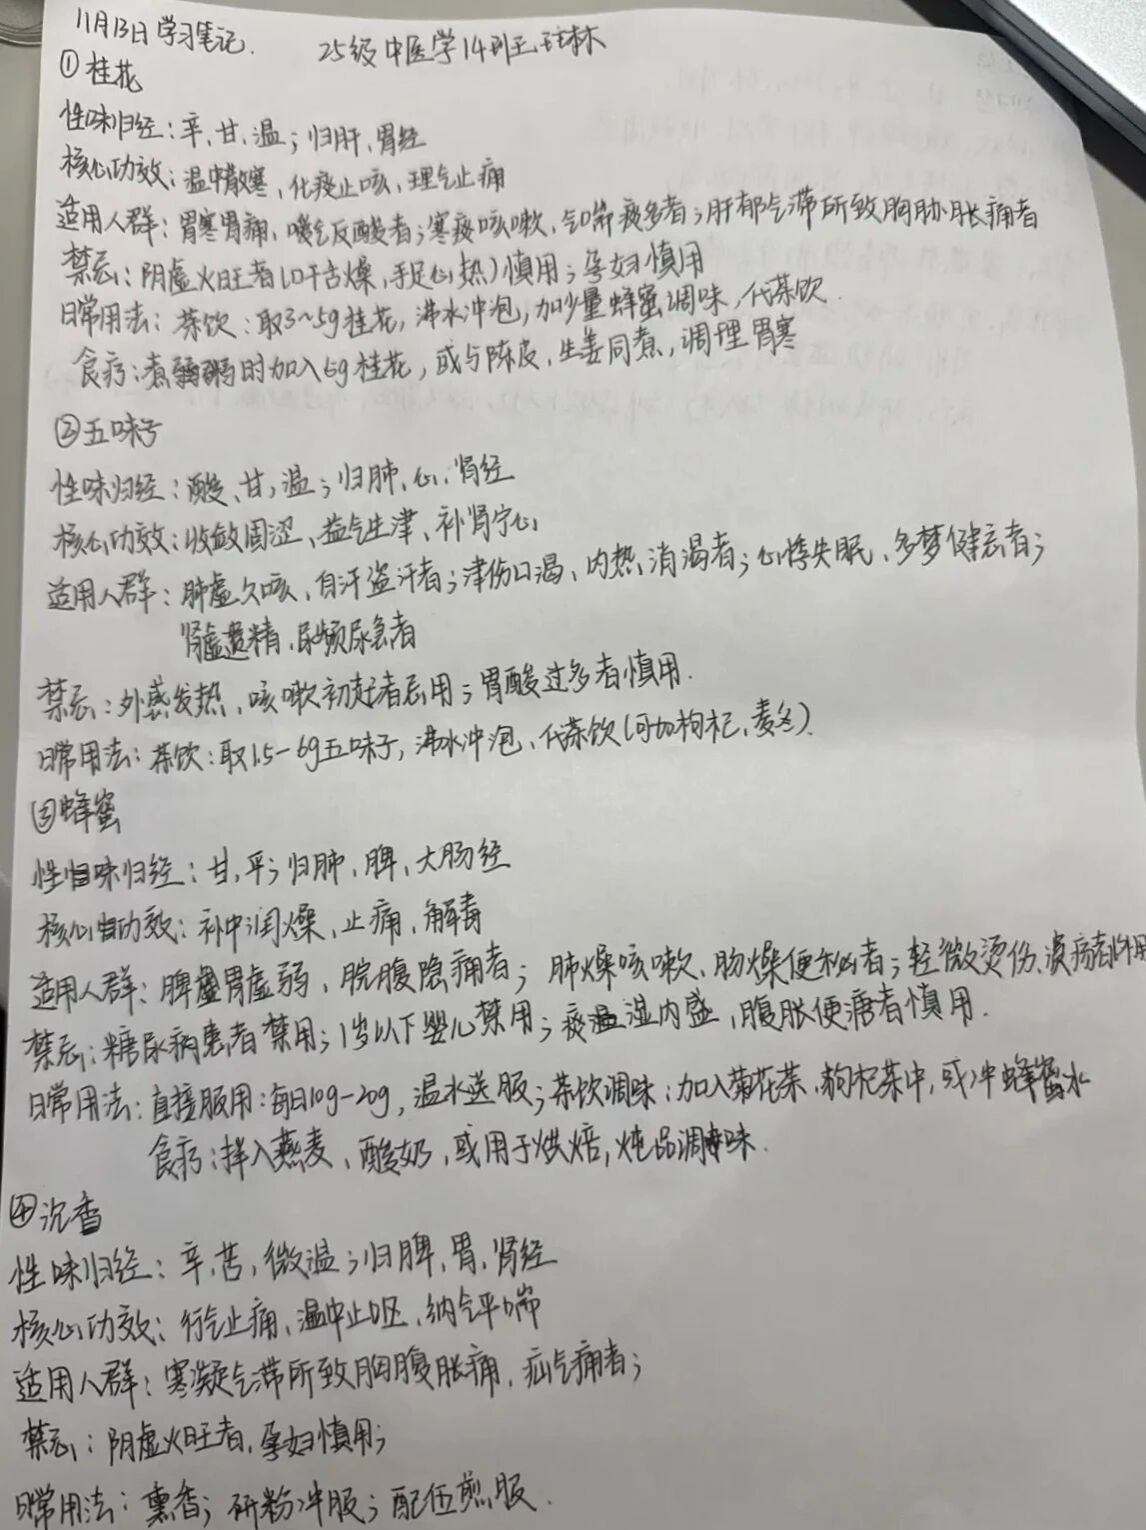 11月13日学习笔记. 25级中医学14班王珪林
①桂花
性味归经：辛、甘、温；归肝、胃经
核心功效：温中散寒、化痰止咳、理气止痛
适用人群：胃寒胃痛、嗳气反酸者；寒痰咳嗽、气喘痰多者；肝郁气滞所致胸胁胀痛者
禁忌：阴虚火旺者(口干舌燥，手足心热)慎用；孕妇慎用
日常用法：茶饮：取3~5g桂花，沸水冲泡，加少量蜂蜜调味，代茶饮.
食疗：煮粥时加入5g桂花，或与陈皮、生姜同煮，调理胃寒
②五味子
性味归经：酸、甘，温；归肺、心、肾经
核心功效：收敛固涩、益气生津、补肾宁心
适用人群：肺虚久咳、自汗盗汗者；津伤口渴、内热消渴者；心悸失眠、多梦健忘者；
肾虚遗精、尿频尿急者
禁忌：外感发热、咳嗽初起者忌用；胃酸过多者慎用.
日常用法：茶饮：取1.5-6g五味子，沸水冲泡、代茶饮(可加枸杞、麦冬).
③蜂蜜
性味归经：甘，平；归肺、脾、大肠经
核心功效：补中润燥、止痛、解毒
适用人群：脾胃虚弱、脘腹隐痛者；肺燥咳嗽、肠燥便秘者；轻微烫伤、溃疡者外用
禁忌：糖尿病患者禁用；1岁以下婴儿禁用；痰湿内盛，腹胀便溏者慎用.
日常用法：直接服用：每日10g-20g，温水送服；茶饮调味：加入菊花茶、枸杞茶中，或冲蜂蜜水
食疗：拌入燕麦、酸奶，或用于烘焙，炖品调味.
④沉香
性味归经：辛、苦，微温；归脾，胃，肾经
核心功效：行气止痛、温中止呕、纳气平喘
适用人群：寒凝气滞所致胸腹胀痛，疝气痛者；
禁忌：阴虚火旺者，孕妇慎用；
日常用法：熏香；研粉冲服；配伍煎服.